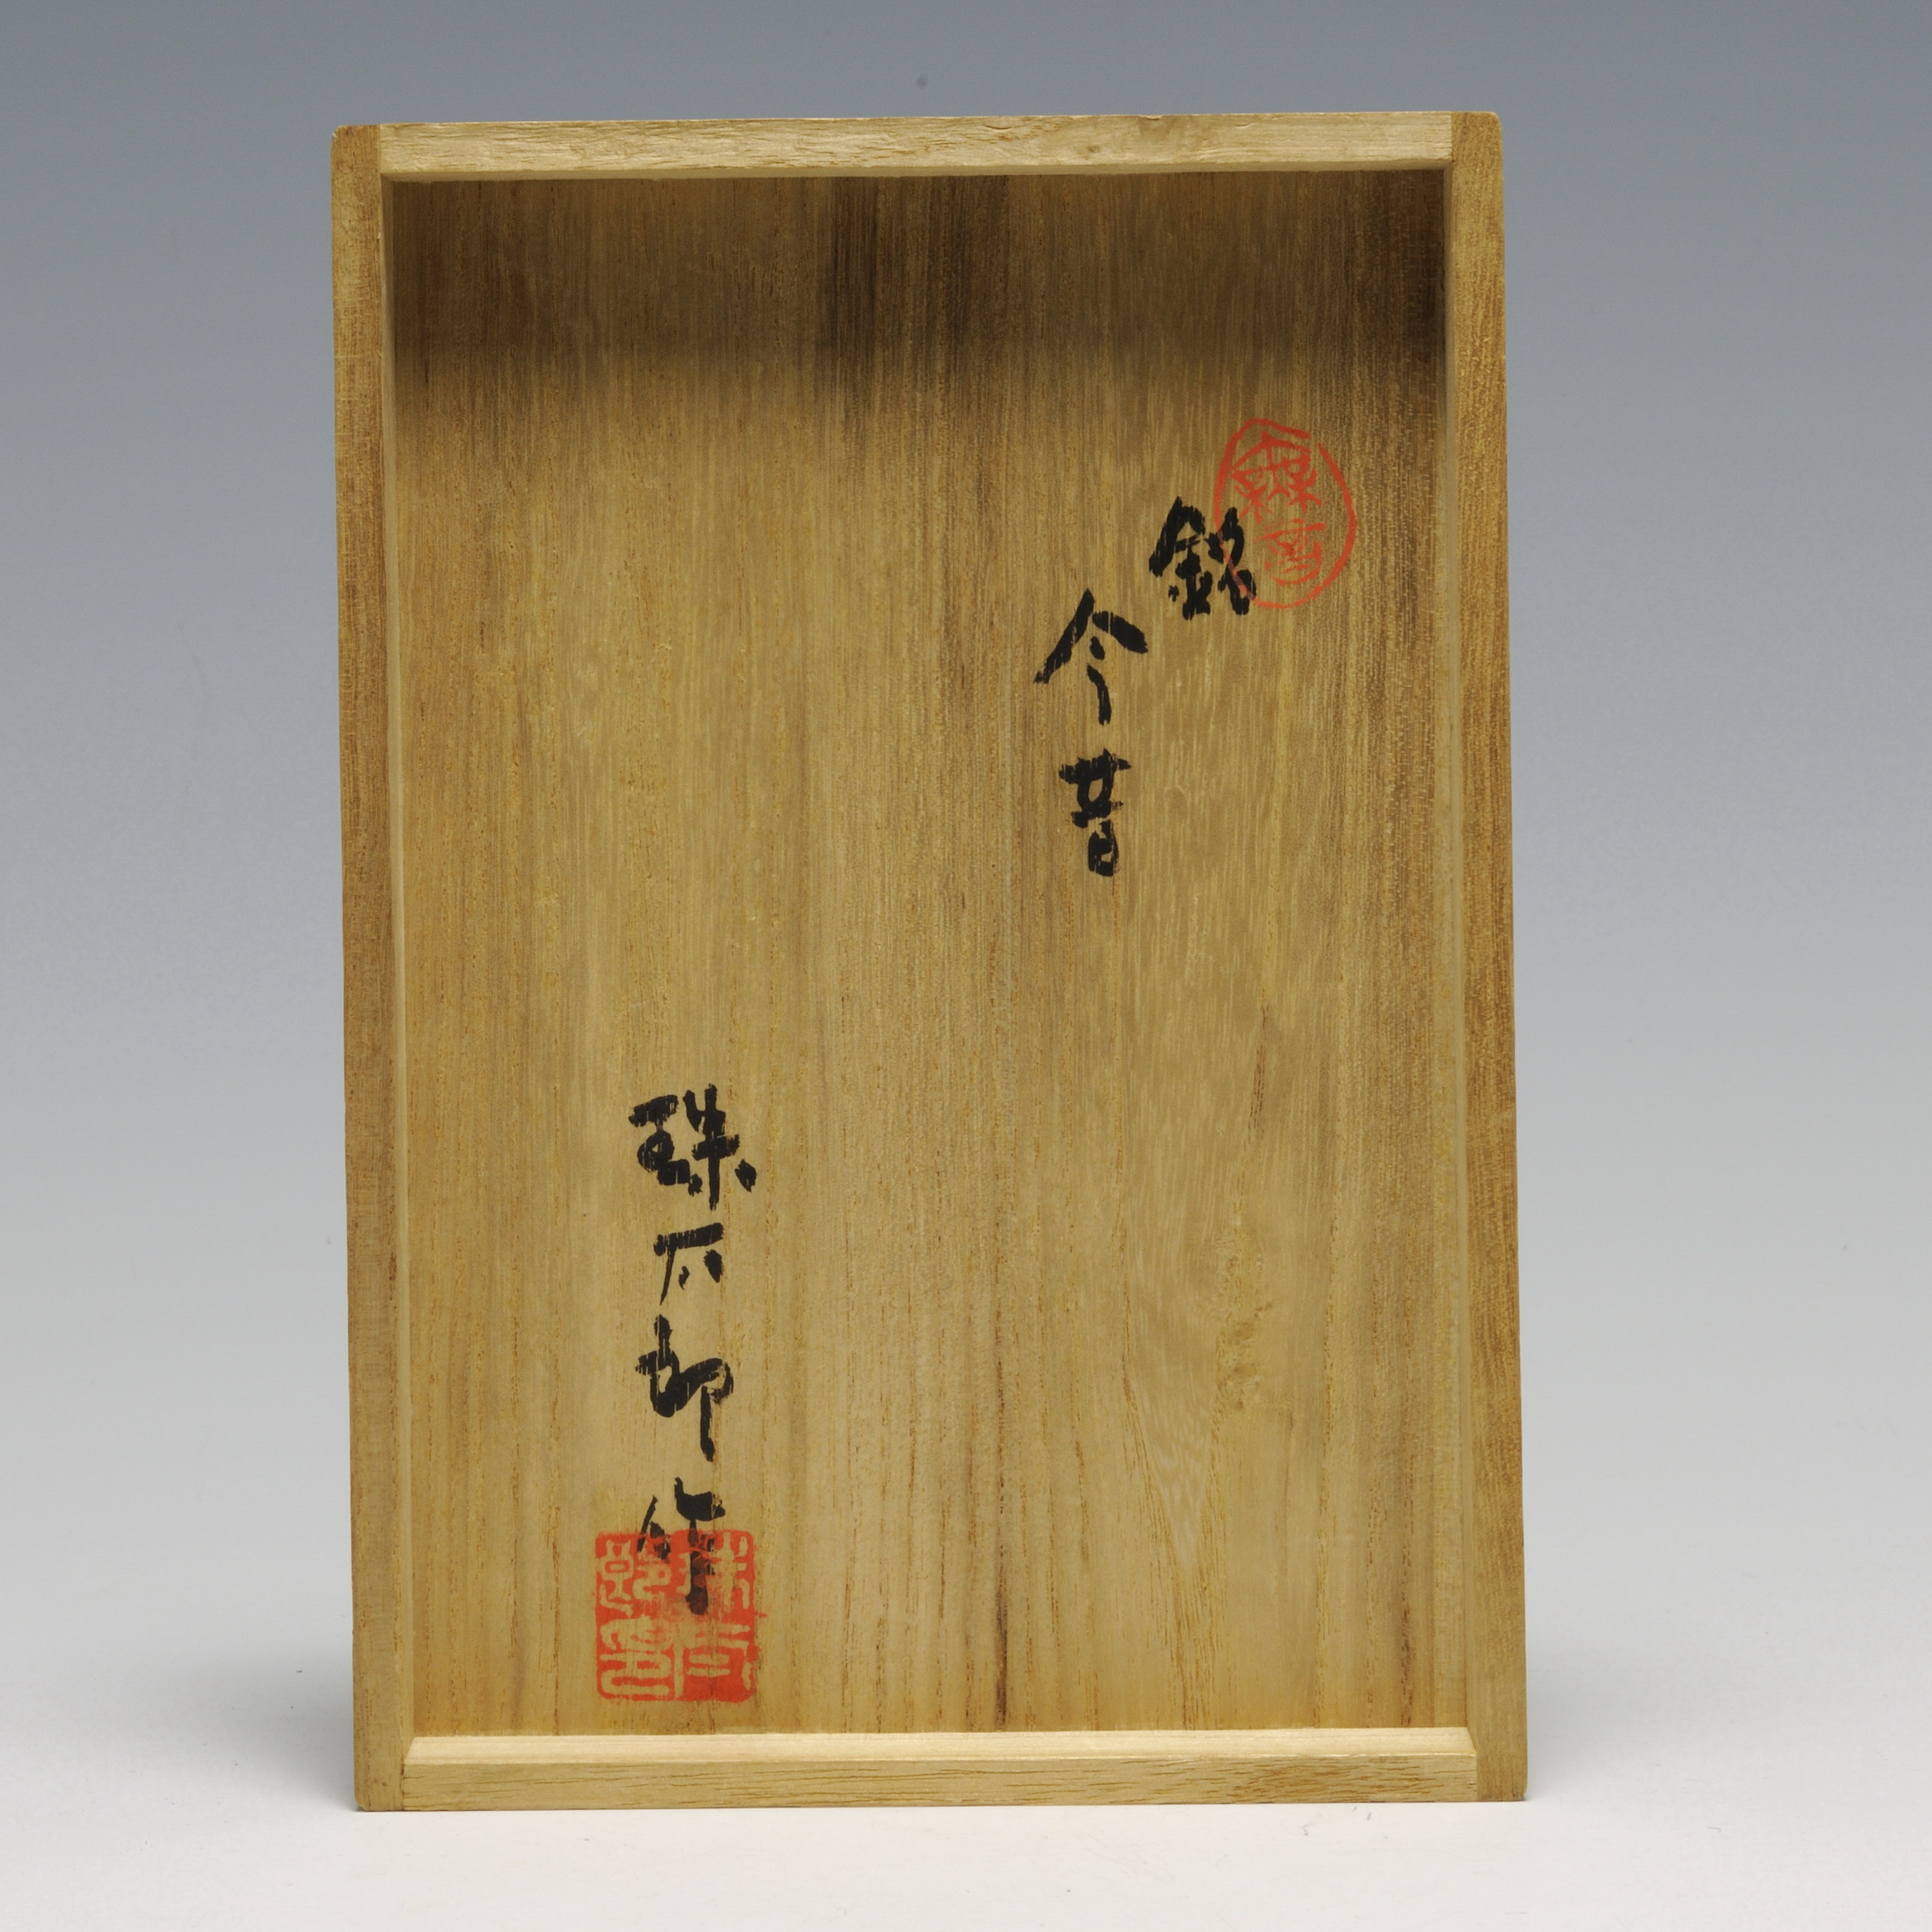 銘
今昔
珠太郎作